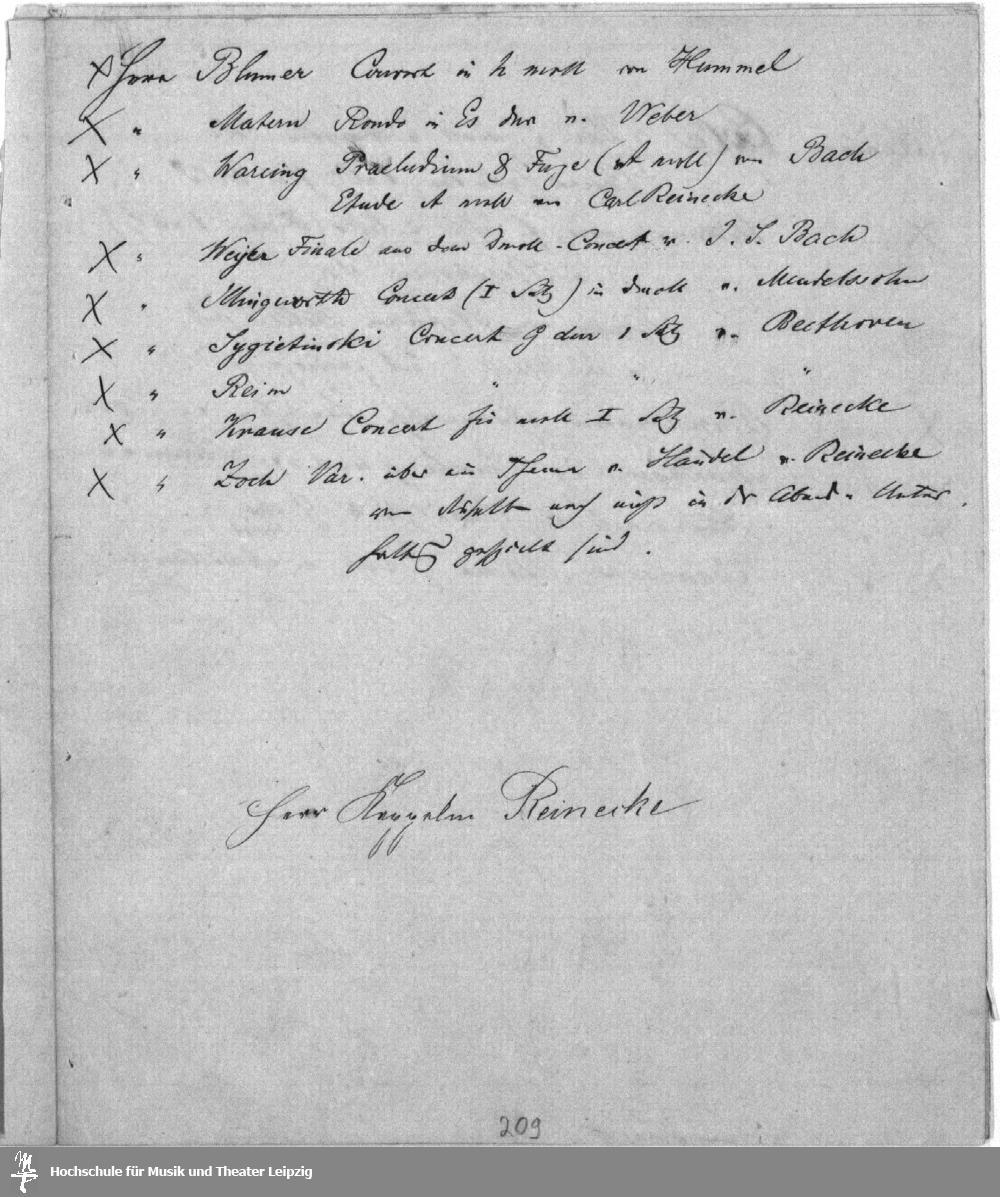 X Herr Blumer Concert in h moll von Hummel
X " Matern Rondo in Es dur v. Weber
X " Wareing Praeludium & Fuge (A moll) von Bach
Etude A moll von Carl Reinecke
X " Weyer Finale aus dem Dmoll-Concert v. J. S. Bach
X " Illingworth Concert (I Satz) in dmoll v. Mendelssohn
X " Sygietinski Concert G dur I Satz v. Beethoven
X " Reim " " "
X " Krause Concert fis moll I Satz v. Reinecke
X " Zoch Var. über ein Thema v. Händel v. Reinecke
noch nicht in der Abend-Unter
haltg gespielt sind.
Herr Kapplm Reinecke
209
Hochschule für Musik und Theater Leipzig